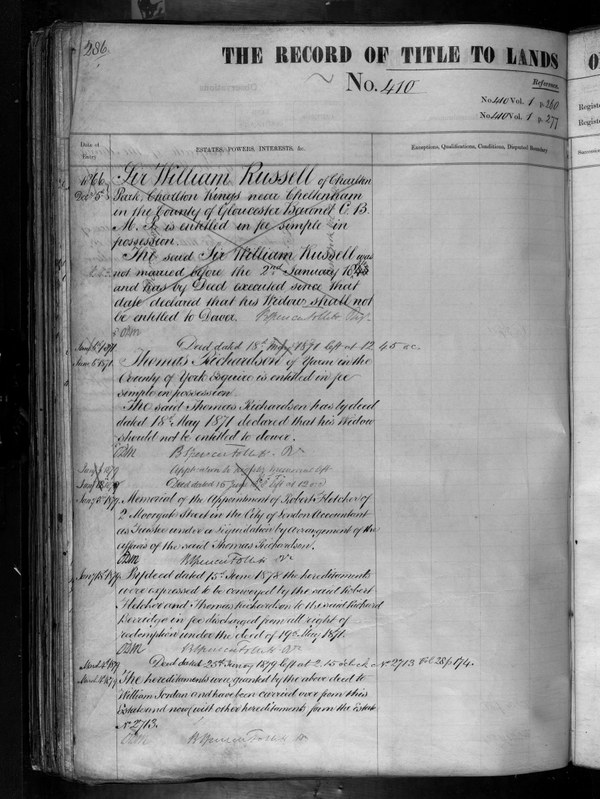 286.
THE RECORD OF TITLE TO LANDS
No. 410
Reference.
No. 410 Vol. 1 p. 260
No. 410 Vol. 1 p. 277
Date of Entry
ESTATES, POWERS, INTERESTS, &c.
Exceptions, Qualifications, Conditions, Disputed Boundary
1866 Sir William Russell of Charlton
Decr 5th Park, Charlton Kings near Cheltenham
in the County of Gloucester Baronet C. B.
M. P. is entitled in fee simple in
possession.
The said Sir William Russell was
not married before the 2nd January
and has by Deed executed since that
date declared that his Widow shall not
be entitled to Dower.
Deed dated 18th May 1871 left at 12.45 oc.
June 6 1871. Thomas Richardson of Yarm in the
County of York Esquire is entitled in fee
simple in possession
The said Thomas Richardson has by deed
dated 18th May 1871 declared that his Widow
should not be entitled to dower.
B Spencer Follett Rr.
Jany 1879
Deed dated 15 June left at 12
Jany 15th 1879. Memorial of the Appointment of Robert Fletcher of
2 Moorgate Street in the City of London Accountant
as Trustee under a Liquidation by arrangement of the
affairs of the said Thomas Richardson.
B Spencer Follett Rr
Jany 18th 1879. By deed dated 15th June 1878 the hereditaments
were expressed to be conveyed by the said Robert
Fletcher and Thomas Richardson to the said Richard
Berridge in fee discharged from all right of
redemption under the deed of 19th May 1871.
B Spencer Follett Rr
March 1879 Deed dated 25th Jany 1879 left at 2.15 o'clock No 2713 Vol 28 p 174.
March 1879 The hereditaments were granted by the above deed to
William Jordan and have been carried over from this
Estate and now (with other hereditaments) form the Estate
No 2713.
B Spencer Follett Rr